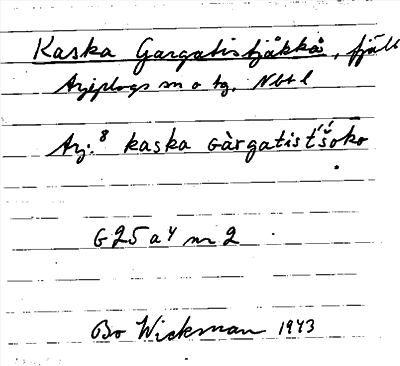 Kaska Gargatistjåkkå, fjäll
Arjeplogs sn o tg, Nbtl
Arj.⁸ kaska Gàrgatist́šoko
G 25 a 4 nr 2
Bo Wickman 1943